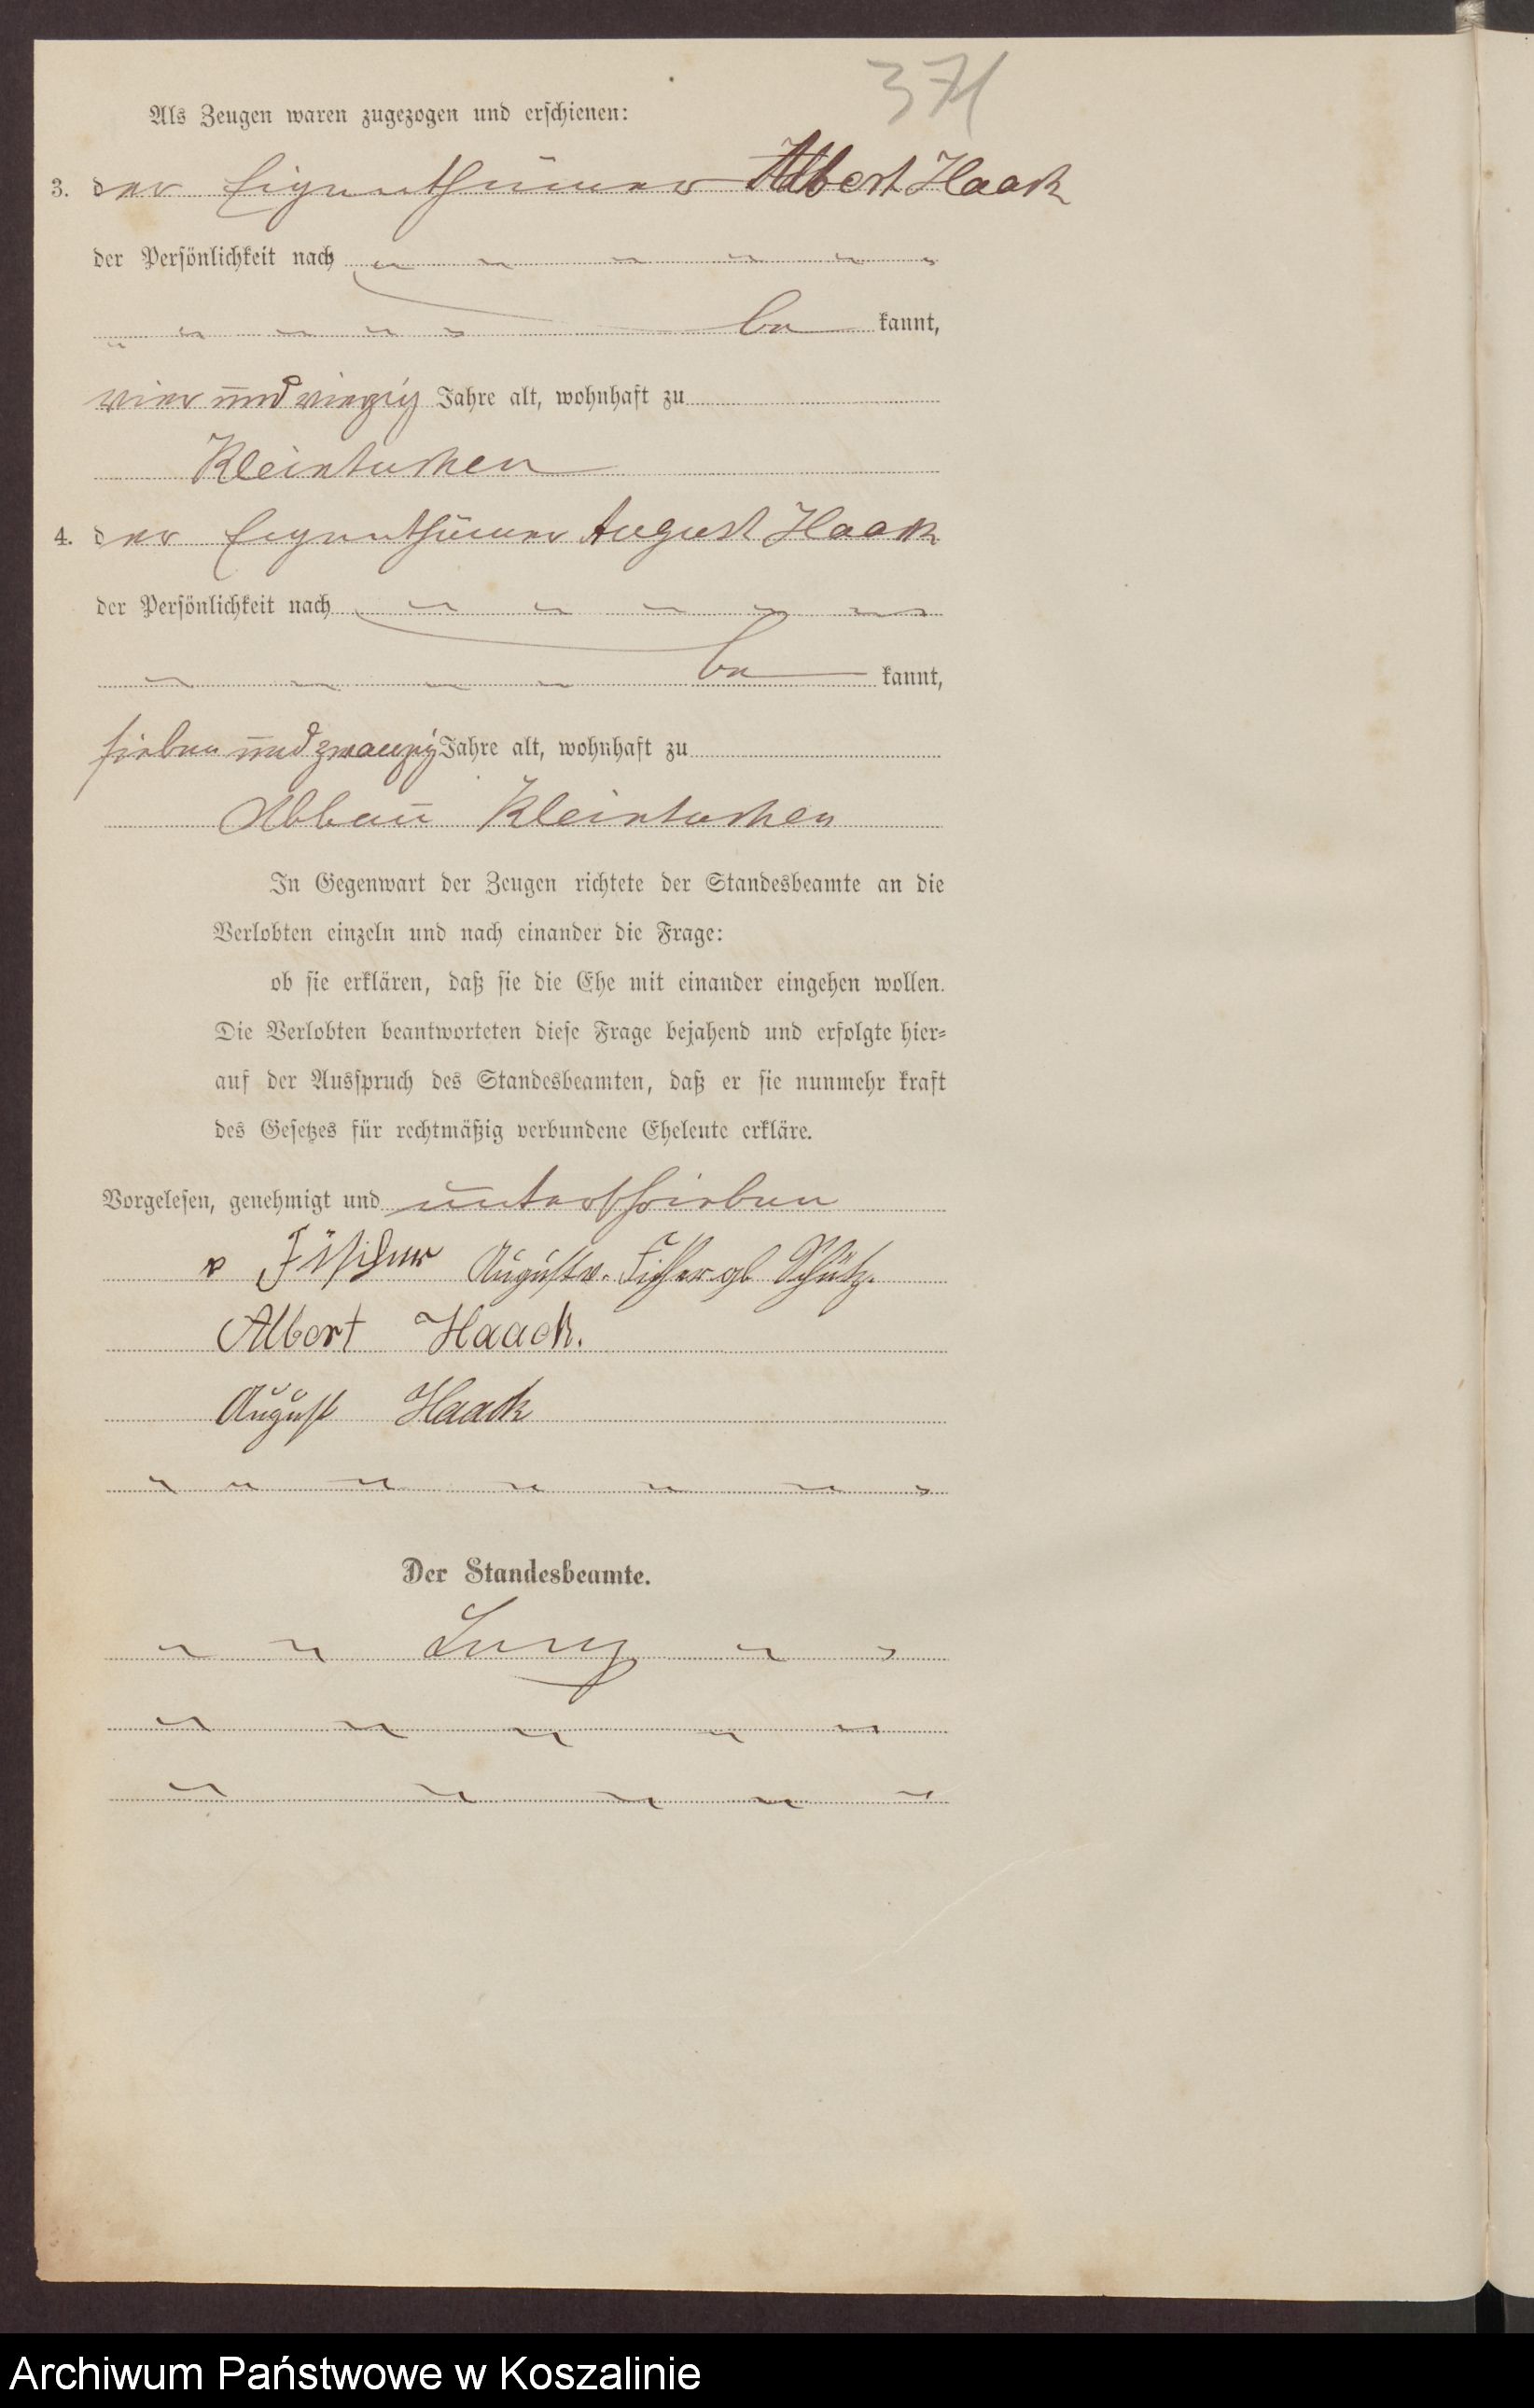 371
Als Zeugen waren zugezogen und erschienen:
3. der Eigenthümer Albert Haack
der Persönlichkeit nach
be kannt,
vier und vierzig Jahre alt, wohnhaft zu
Kleintuchen
4. der Eigenthümer August Haack
der Persönlichkeit nach
be kannt,
sieben und zwanzig Jahre alt, wohnhaft zu
Abbau Kleintuchen
In Gegenwart der Zeugen richtete der Standesbeamte an die
Verlobten einzeln und nach einander die Frage:
ob sie erklären, daß sie die Ehe mit einander eingehen wollen.
Die Verlobten beantworteten diese Frage bejahend und erfolgte hier-
auf der Ausspruch des Standesbeamten, daß er sie nunmehr kraft
des Gesetzes für rechtmäßig verbundene Eheleute erkläre.
Vorgelesen, genehmigt und unterschrieben
Fischer Auguste Fischer gb Schütz.
Albert Haack.
August Haack
Der Standesbeamte.
Archiwum Państwowe w Koszalinie